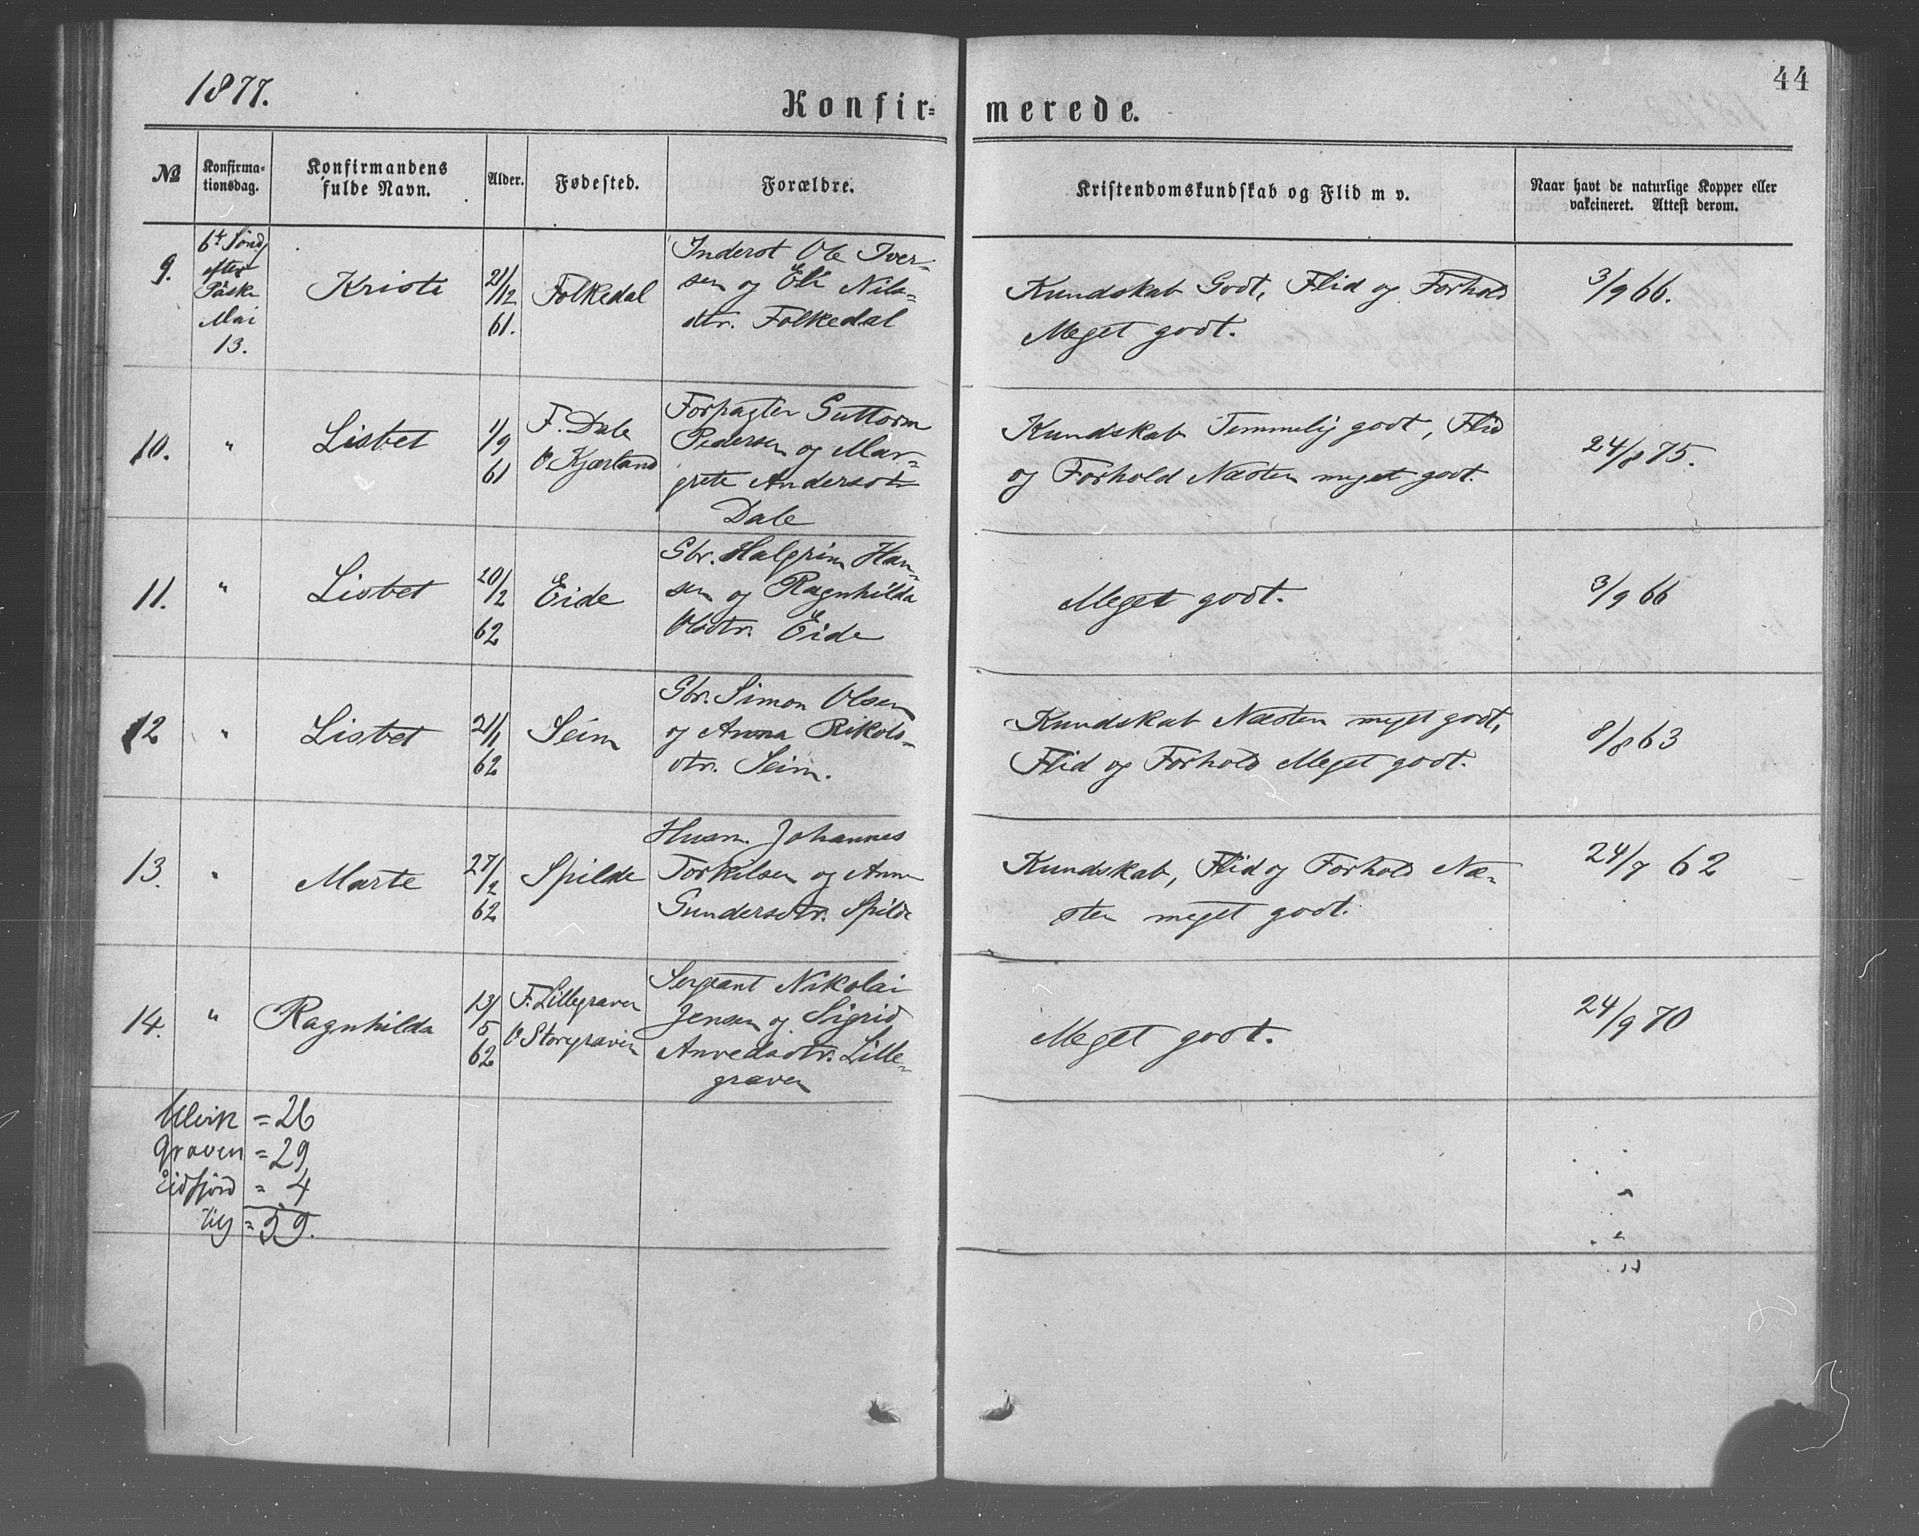 1877.
44
Konfir= merede.
№
Konfirma-
tionsdag.
Konfirmandens
fulde Navn.
Alder.
Fødested.
Forældre.
Kristendomskundskab og Flid m v.
Naar havt de naturlige Kopper eller
vakcineret. Attest derom.
9.
6te Sønd
efter
Påske
Mai
13.
Kristi
21/12
61.
Folkedal
Inderst Ole Iver-
sen og Eli Nils-
dtr. Folkedal
Kundskab Godt, Flid og Forhold
Meget godt.
3/9 66.
10.
"
Lisbet
1/9
61
F. Dale
O Kjærland
Forpagter Guttorm
Pedersen og Mar-
grete Andersdtr
Dale
Kundskab Temmelig godt, Flid
og Forhold Næsten meget godt.
24/8 75.
11.
"
Lisbet
20/2
62
Eide
Gbr. Halgrim Han-
sen og Ragnhilda
Olsdtr. Eide
Meget godt.
3/9 66
12
"
Lisbet
21/1
62
Seim
Gbr. Simon Olsen
og Anna Rikols-
dtr. Seim.
Kundskab Næsten meget godt,
Flid og Forhold Meget godt.
8/8 63
13.
"
Marte
27/2
62
Spilde
Husm. Johannes
Torkilsen og Anna
Gundersdtr. Spilde
Kundskab, Flid og Forhold Næ-
sten meget godt.
24/7 62
14.
"
Ragnhilda
13/5
62
F. Lillegraven
O Storegraven
Sergeant Nikolai
Jensen og Sigrid
Anvedsdtr. Lille-
graven
Meget godt.
24/9 70
Ulvik = 26
Graven = 29
Eidfjord = 4
= 59.